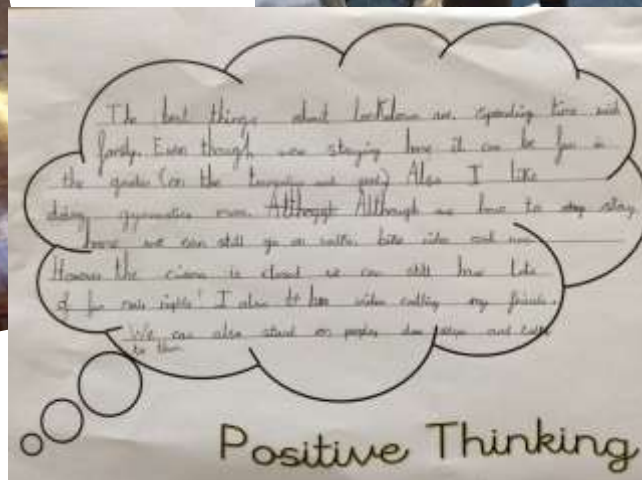 The best things about lockdown are spending time with
family. Even though were staying home it can be fun in
the garden (on the trampoline and pool) Also I like
doing gymnastics more. Although we have to stay
home we can still go on walks, bike rides and
However the cinema is closed we can still have lots
of fun movie nights! I also video calling my friends.
We can also stand on peoples door steps and talk
to them
Positive Thinking